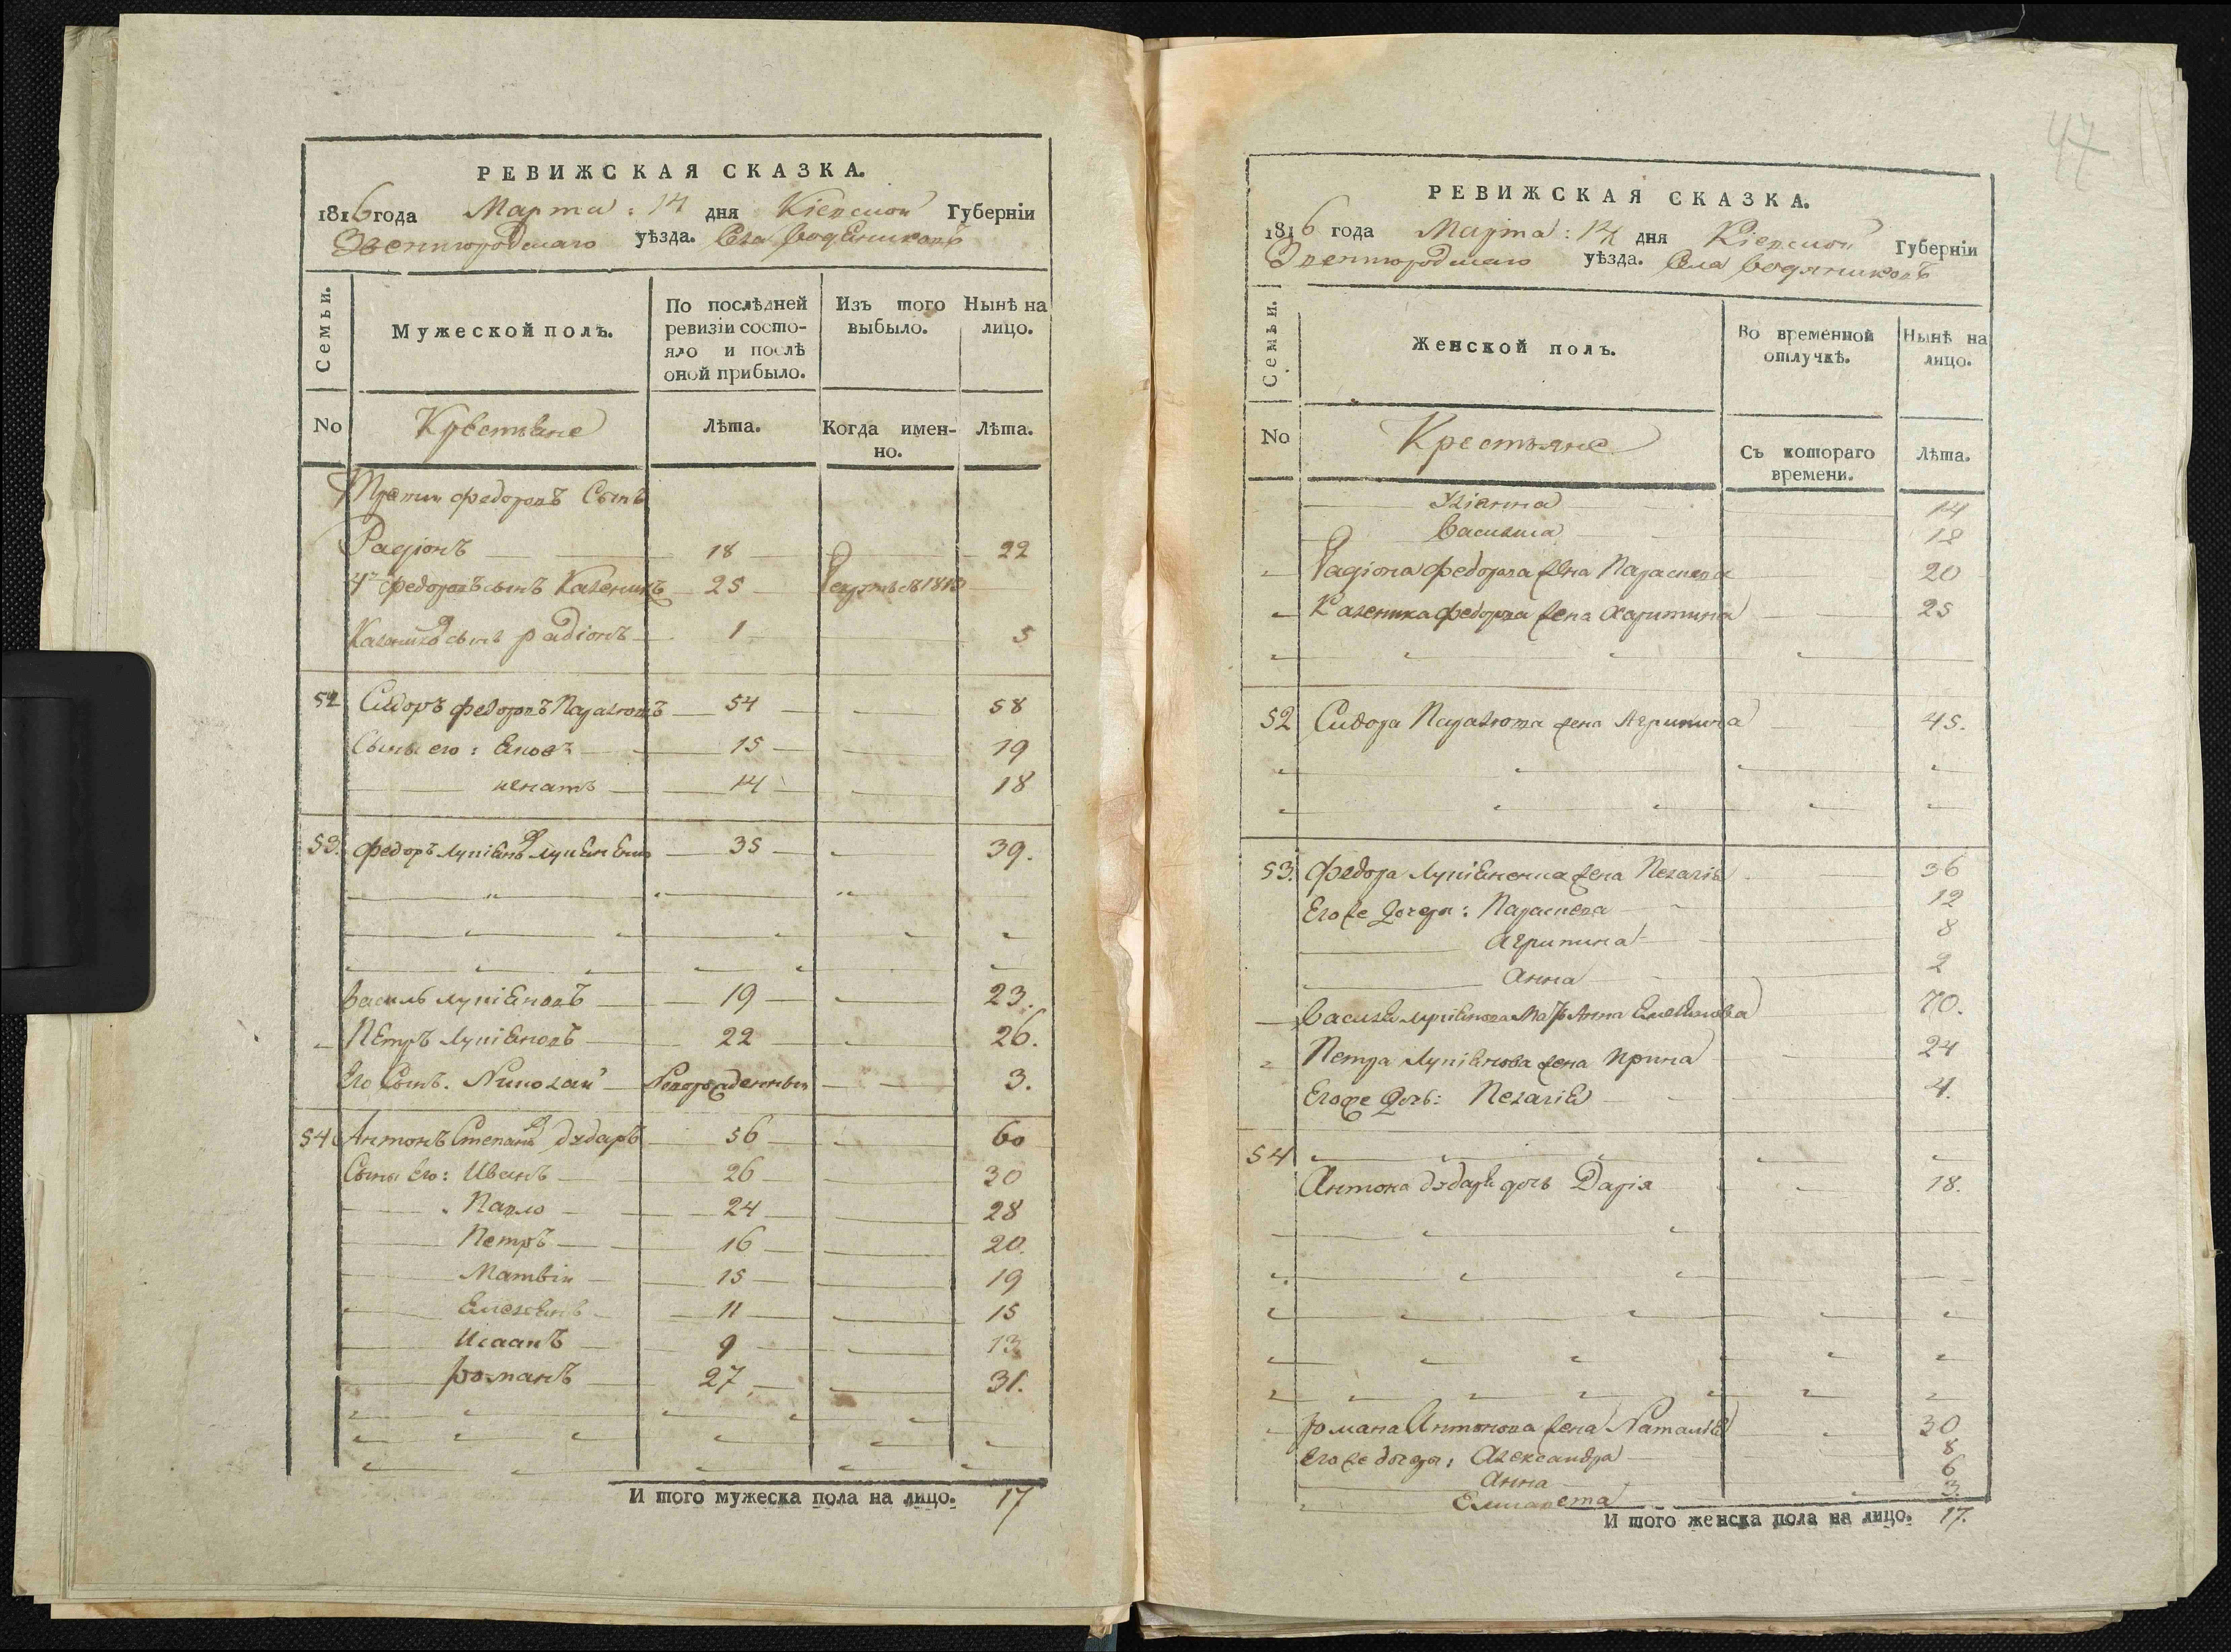 47
РЕВИЖСКАЯ СКАЗКА.
1816 года Марта: 14 дня Кіевской Губерніи
Звенигородскаго уѣзда. Села Водяниковъ
Семьи. Мужеской полъ. По послѣдней ревизіи состояло и послѣ оной прибыло. Изъ того выбыло. Нынѣ на лицо.
No Крестьяне Лѣта. Когда именно. Лѣта.
Федоровъ Сынъ
Радіонъ 18 22
4й Федоровъ сынъ Каленикъ 25 1813
сынъ радіонъ 1 5
52 Сидоръ Федоровъ 54 58
Сыны его: 15 19
игнатъ 14 18
53. Федоръ Лукіяновъ 35 39.
Василь Лукіяновъ 19 23.
Петръ Лукіяновъ 22 26.
Его Сынъ. Николай Новорожденный 3.
54 Антонъ Степановъ Дударъ 56 60
Сыны Его: Иванъ 26 30
Павло 24 28
Петръ 16 20.
Матвій 15 19
Емельянъ 11 15
Исаакъ 9 13
романъ 27 31.
И того мужеска пола на лицо. 17
РЕВИЖСКАЯ СКАЗКА.
1816 года Марта: 14 дня Кіевской Губерніи
Звенигородскаго уѣзда. Села Водяниковъ
Семьи. Женской полъ. Во временной отлучкѣ. Нынѣ на лицо.
No Крестьяне Съ котораго времени. Лѣта.
Уліянна 14
Василиса 12
Радіона Федорова жена Параскева 20
Каленика Федорова жена Харитина 25
52 Сидора жена Агрипина 45.
53. Федора Лукіяненка жена Пелагія 36
Его же дочери: Параскева 12
Агрипина 8
Анна 2
Василя Лукіянова Мать Анна Емельянова 70.
Петра Лукіянова жена Ирина 24
Его же Дочь: Пелагія 4.
54
Антона Дударя дочь Дарія 18.
Романа Антонова жена Наталія 30
Его же дочери: Александра 8
Анна 6
Елисавета 3.
И того женска пола на лицо. 17.